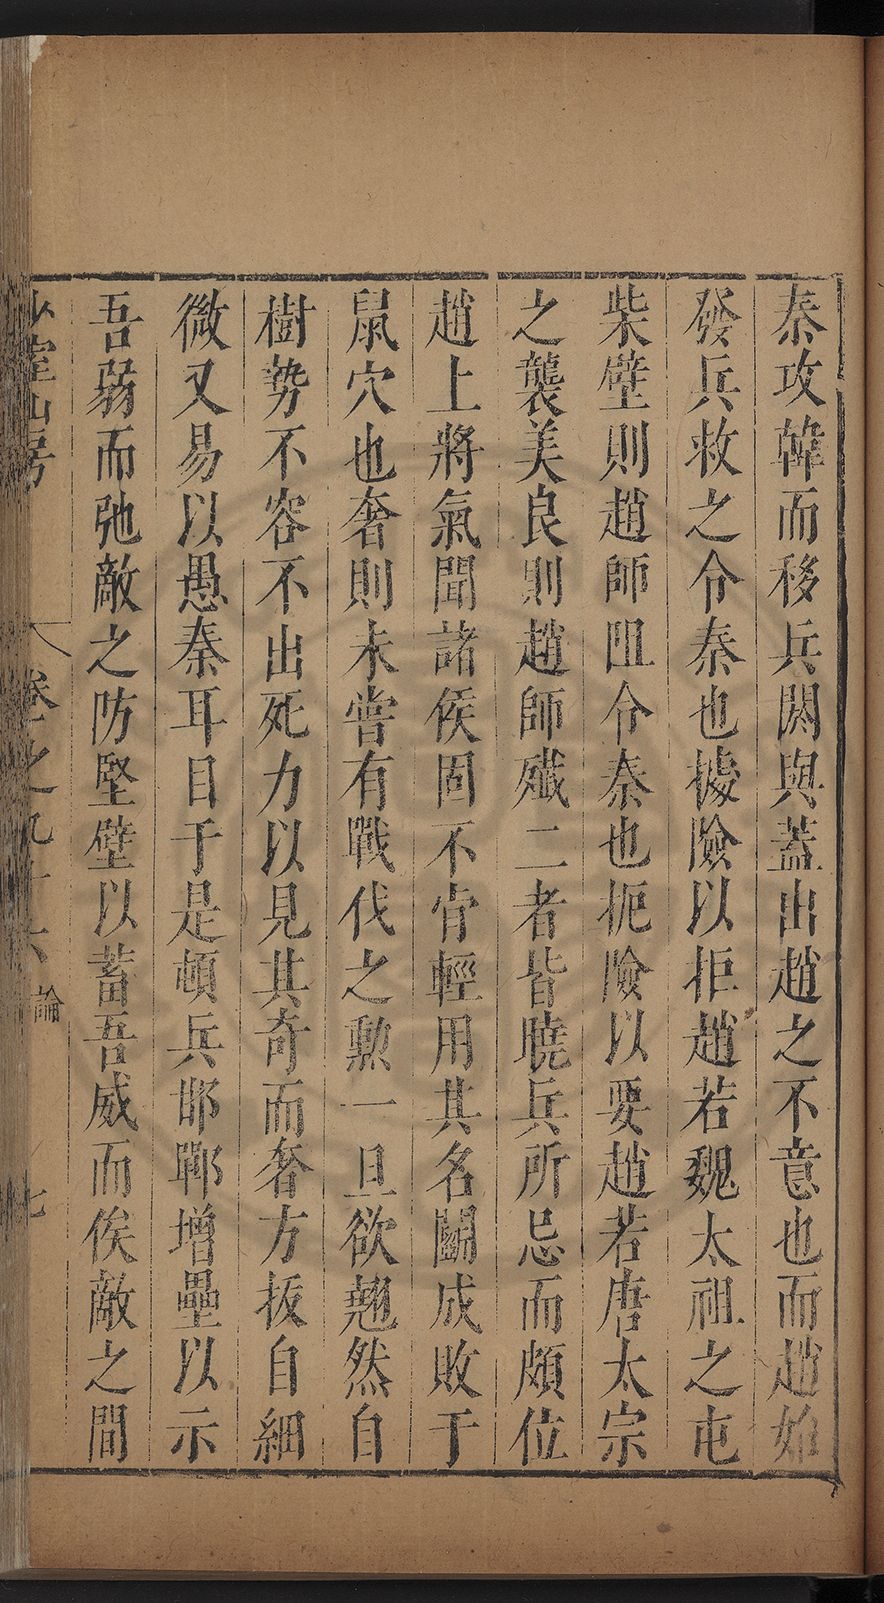 秦攻韓而移兵閼與蓋出趙之不意也而趙始
發兵救之令秦也據險以拒趙若魏太祖之屯
柴壁則趙師阻令秦也扼險以要趙若唐太宗
之襲美良則趙師殲二者皆曉兵所忌而頗位
趙上將氣聞諸侯固不肯輕用其名鬭成敗于
鼠穴也奢則未嘗有戰伐之勲一旦欲翹然自
樹勢不容不出死力以見其奇而奢方拔自細
微又易以愚秦耳目于是頓兵邯鄲增壘以示
吾弱而弛敵之防堅壁以蓄吾威而俟敵之間
少室山房 卷之九十六 論 七